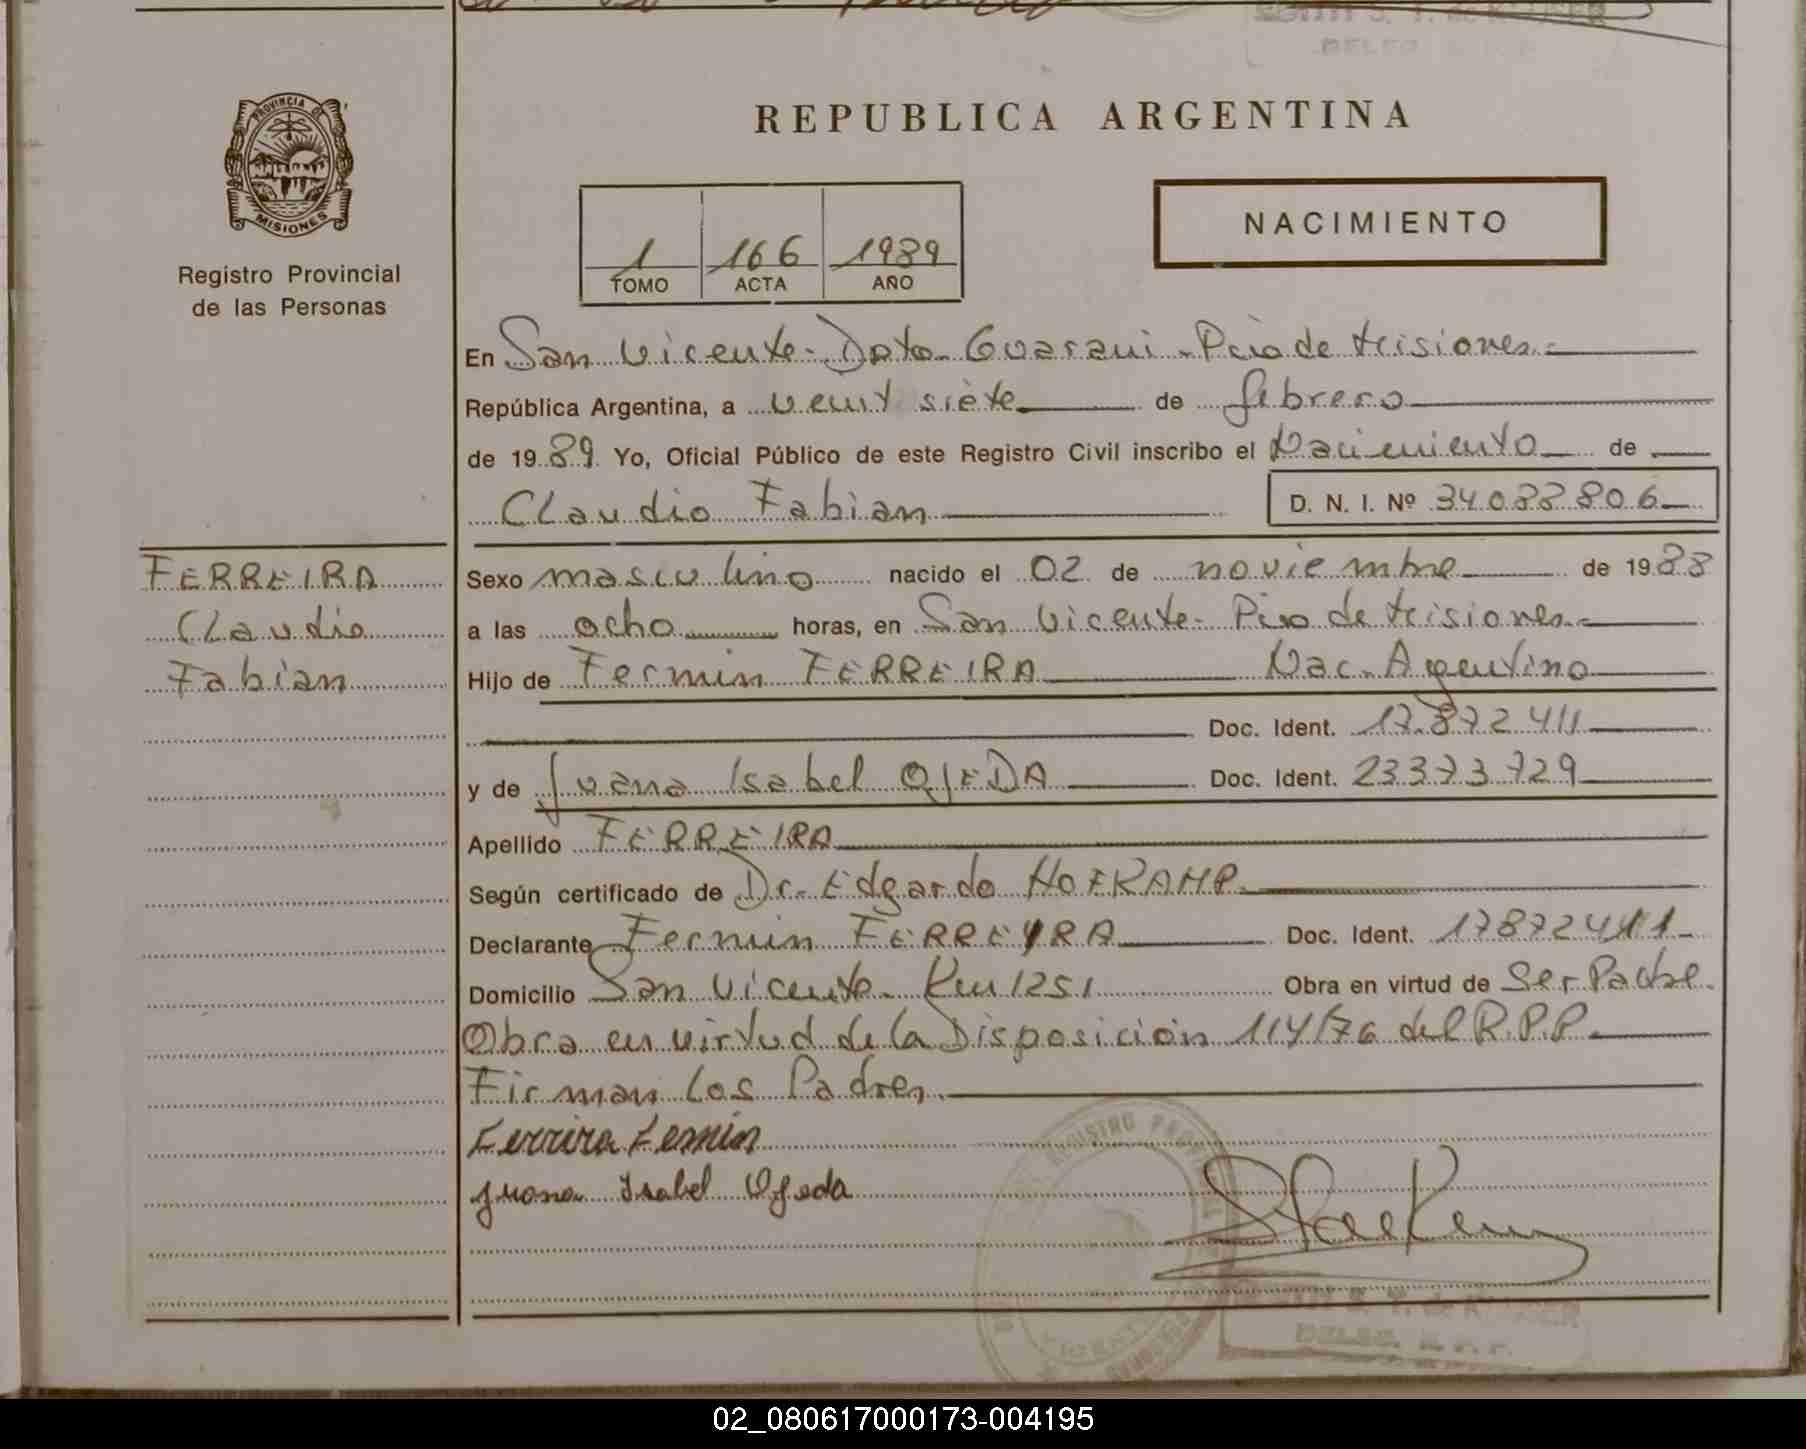 REPUBLICA ARGENTINA
PROVINCIA DE
MISIONES
Registro Provincial
de las Personas
NACIMIENTO
1 166 1989
TOMO ACTA AÑO
En San Vicente - Dpto Guarani - Pcia de Misiones
República Argentina, a veintisiete de febrero
de 1989 Yo, Oficial Público de este Registro Civil inscribo el Nacimiento de
Claudio Fabian D. N. I. Nº 34.088.806
FERREIRA
Claudio
Fabian
Sexo masculino nacido el 02 de noviembre de 1988
a las ocho horas, en San Vicente - Pcia de Misiones
Hijo de Fermin FERREIRA Nac. Argentino
Doc. Ident. 17.872411
y de Juana Isabel OJEDA Doc. Ident. 23373729
Apellido FERREIRA
Según certificado de Dr. Edgardo HOFKAMP
Declarante Fermin FERREYRA Doc. Ident. 17872411
Domicilio San Vicente - Km 1251 Obra en virtud de Ser Padre
Obra en virtud de la Disposición 114/76 del R.P.P.
Firman los Padres
Ferrira Femin
Juana Isabel Ojeda
REGISTRO
DELEG. R. P. P.
02_080617000173-004195